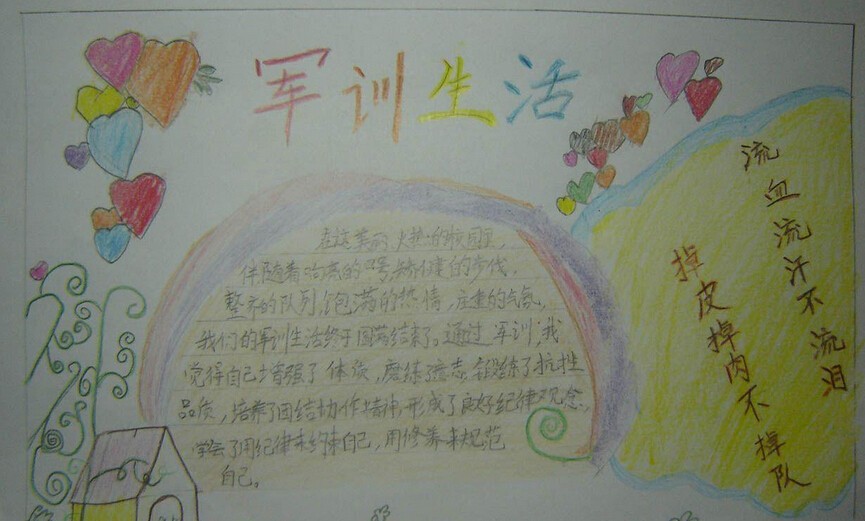 军训生活
在这美丽火热的校园里,
伴随着嘹亮的口号,矫健的步伐,
整齐的队列,饱满的热情,庄重的气氛,
我们的军训生活终于圆满结束了。通过军训,我
觉得自己增强了体质,磨练了意志,锻练了抗挫
品质,培养了团结协作精神,形成了良好纪律观念,
学会了用纪律来约束自己,用修养来规范
自己。
流血流汗不流泪
掉皮掉肉不掉队